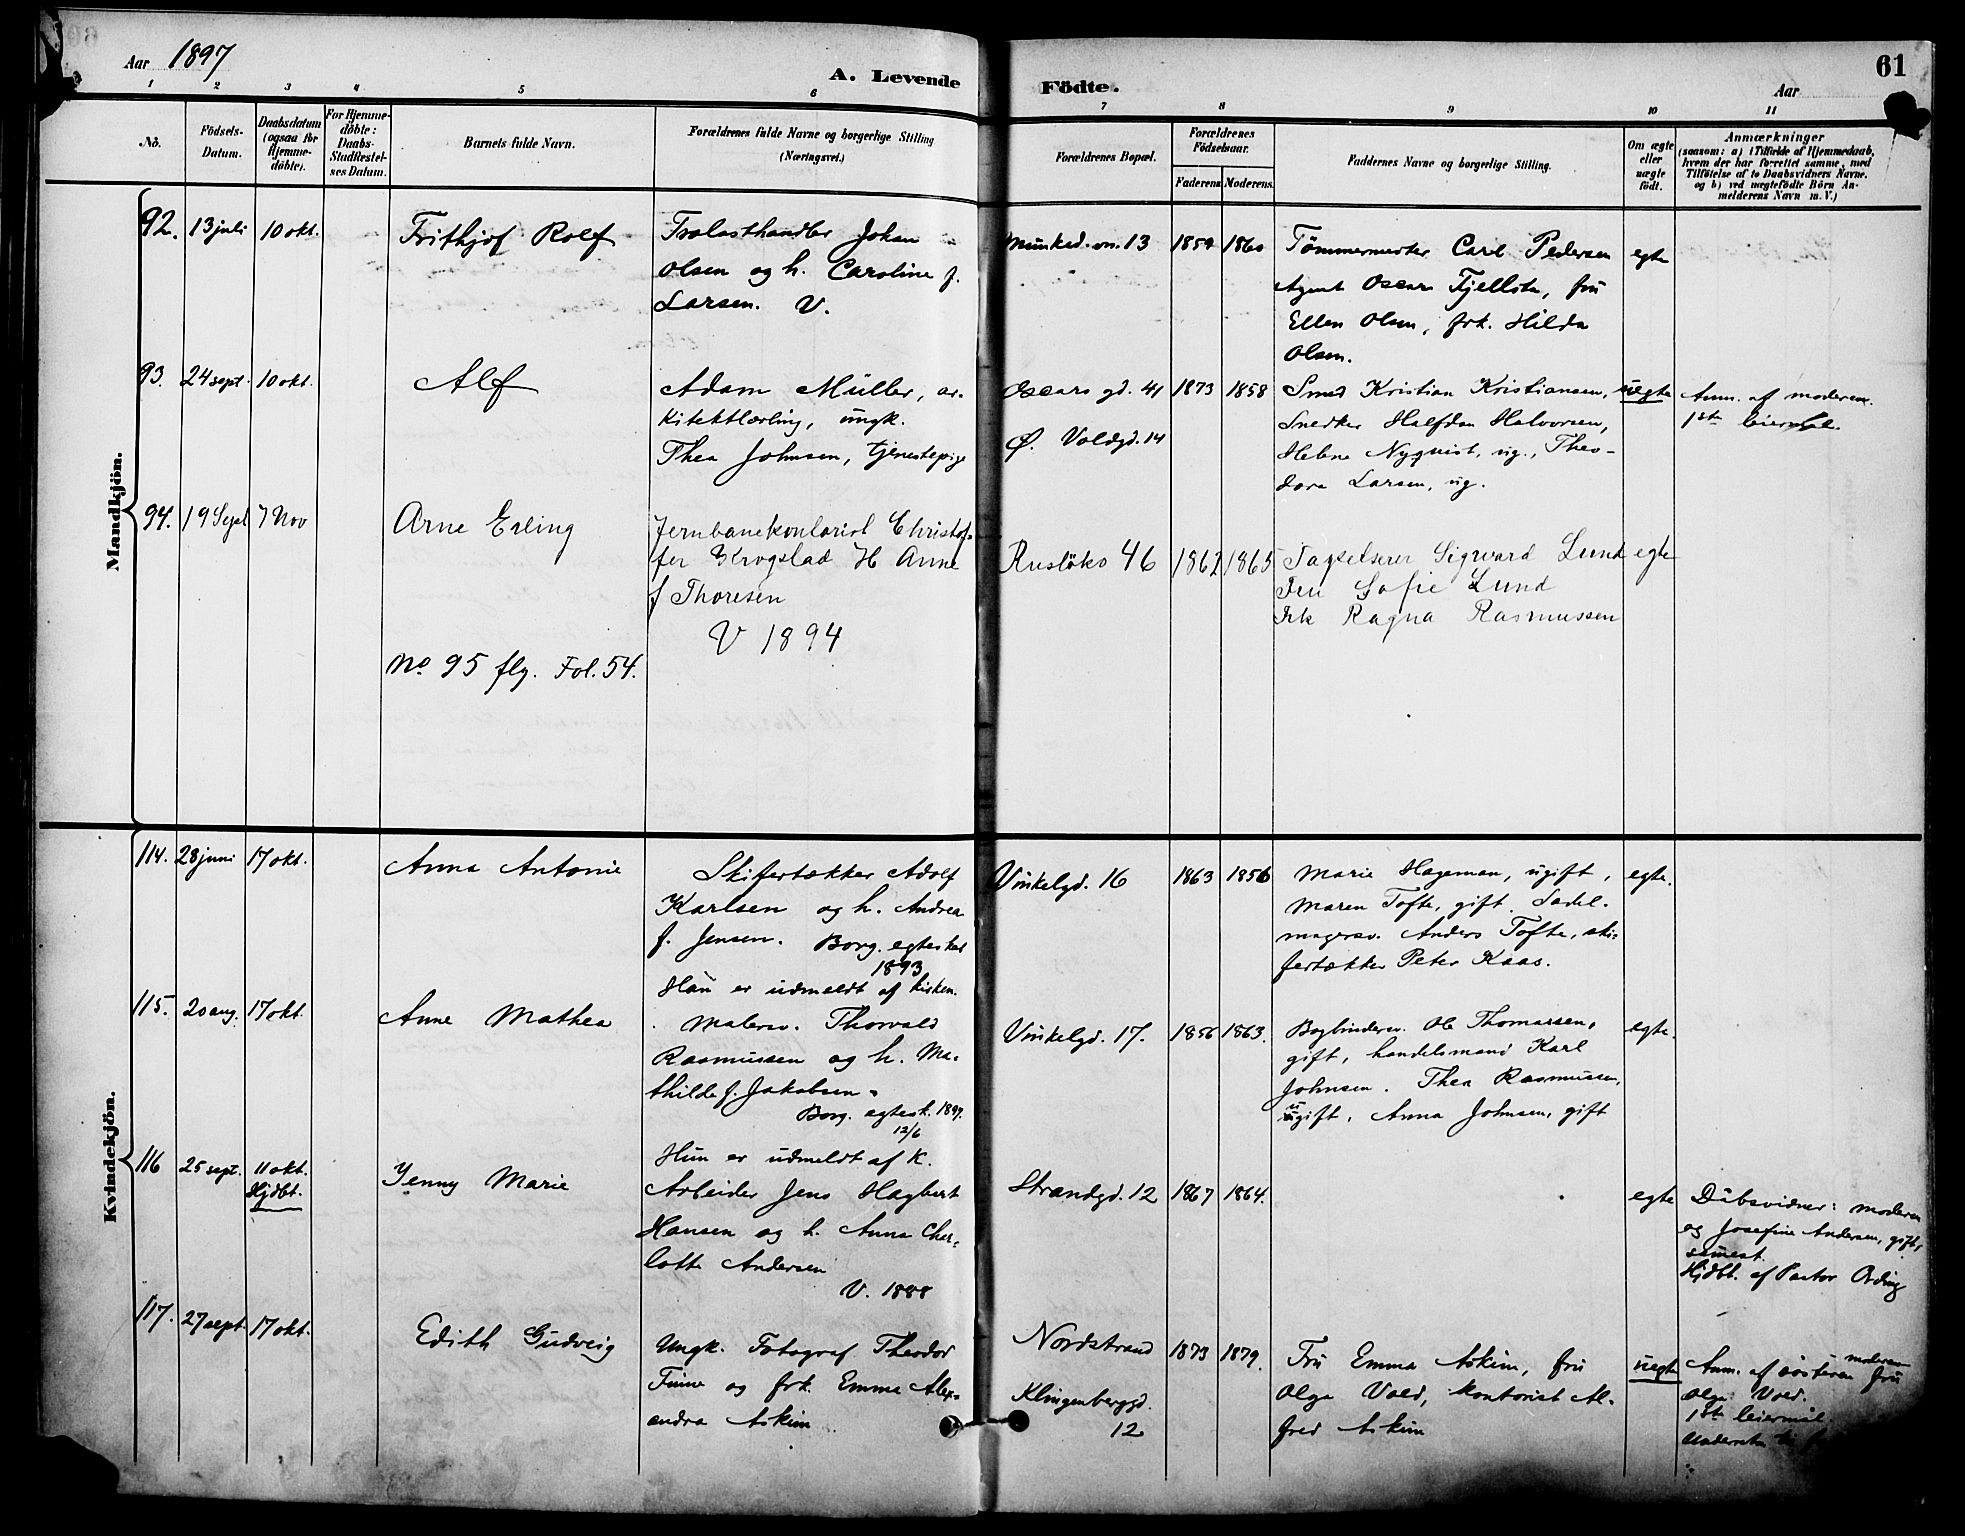 Aar 1897
A. Levende Födte.
Aar
61
1 2 3 4 5 6 7 8 9 10 11
No.
Födsels-
Datum.
Daabsdatum
(ogsaa for
Hjemme-
döbte).
For Hjemme-
döbte:
Daabs-
Stadfæstel-
ses Datum.
Barnets fulde Navn.
Forældrenes fulde Navne og borgerlige Stilling
(Næringsvei.)
Forældrenes Bopæl.
Forældrenes
Födselsaar.
Faderens Moderens.
Faddernes Navne og borgerlige Stilling.
Om ægte
eller
uægte
födt.
Anmærkninger
(saasom: a) i Tilfælde af Hjemmedaab,
hvem der har forrettet samme, med
Tilföielse af to Daabsvidners Navne.
og b) ved uægtefödte Börn An-
melderens Navn m. V.)
Mandkjön.
92. 13 juli 10 okt.
Frithjof Rolf
Trælasthandler Johan
Olsen og h. Caroline f.
Larsen. V.
Munked.vn. 13
1859 1860
Tömmermester Carl Pedersen
Agent Oscar Fjellstu, fru
Ellen Olsen, frk. Hilda
Olsen.
egte
93. 24 sept. 10 okt.
Alf
Adam Müller, ar-
kitektlærling, ungk.
Thea Johnsen, tjenestepige
Oscars gd. 41
Ø. Voldgd. 14
1873 1858
Smed Kristian Kristiansen,
Snedker Halfdan Halvorsen,
Helene Nyquist, ug., Theo-
dora Larsen, ug.
uegte
Anm. af moderen.
1ste leiermål.
94. 19 Sept 7 Nov
Arne Erling
Jernbanekontorist Christof-
fer Krogstad H Anne
f Thoresen
V 1894
Rusløko 46
1862 1865
Tapetserer Sigward Lund
Fru Sofie Lund
Frk Ragna Rasmussen
egte
No 95 flg. Fol. 54.
Kvindekjön.
114. 28 juni 17 okt.
Anna Antonie
Skifertækker Adolf
Karlsen og h. Andrea
f. Jensen. Borg. egteskab
1893
Han er udmeldt af kirken.
Vinkelgd. 16
1863 1856
Marie Hageman, ugift,
Maren Tofte, gift. Sadel-
magersv. Anders Tofte, ski-
fertækker Peter Kaas.
egte.
115. 20 aug. 17 okt.
Anne Mathea
Malersv. Thorvald
Rasmussen og h. Ma-
thilde f. Jakobsen.
Borg. egtesk. 1897.
12/6
Hun er udmeldt af K.
Vinkelgd. 17.
1856 1863.
Bogbindersv. Ole Thomassen,
gift, handelsmand Karl
Johnsen. Thea Rasmussen,
ugift, Anna Johnsen, gift
egte.
116 25 sept. 11 okt.
Hjdbt.
Jenny Marie
Arbeider Jens Hagbert
Hansen og h. Anna Char-
lotte Andersen
V. 1888
Strandgd. 12
1867 1864.
egte
Dåbsvidner: moderen
og Josefine Andersen, gift,
sammest.
Hjdbt. af Pastor Ording
117. 27 sept. 17 okt.
Edith Gudveig
Ungk. Fotograf Theodor
Finne og frk. Emma Alex-
andra Askim
Nordstrand
Klingenberggd.
12
1873 1879.
Fru Emma Askim, fru
Olga Vold, kontorist Al-
fred Askim
uegte
Anm. af moderen
søsteren fru
Olga Vold.
1ste leiermål.